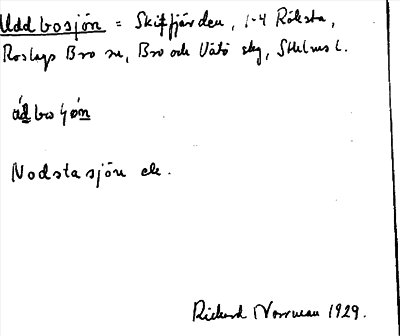 Uddbosjön = Skeppfjärden, 1-4 Röksta,
Roslags Bro sn, Bro och Vätö skg, Sthlms l.
Nodstasjön ek.
Rickard Norrman 1929.